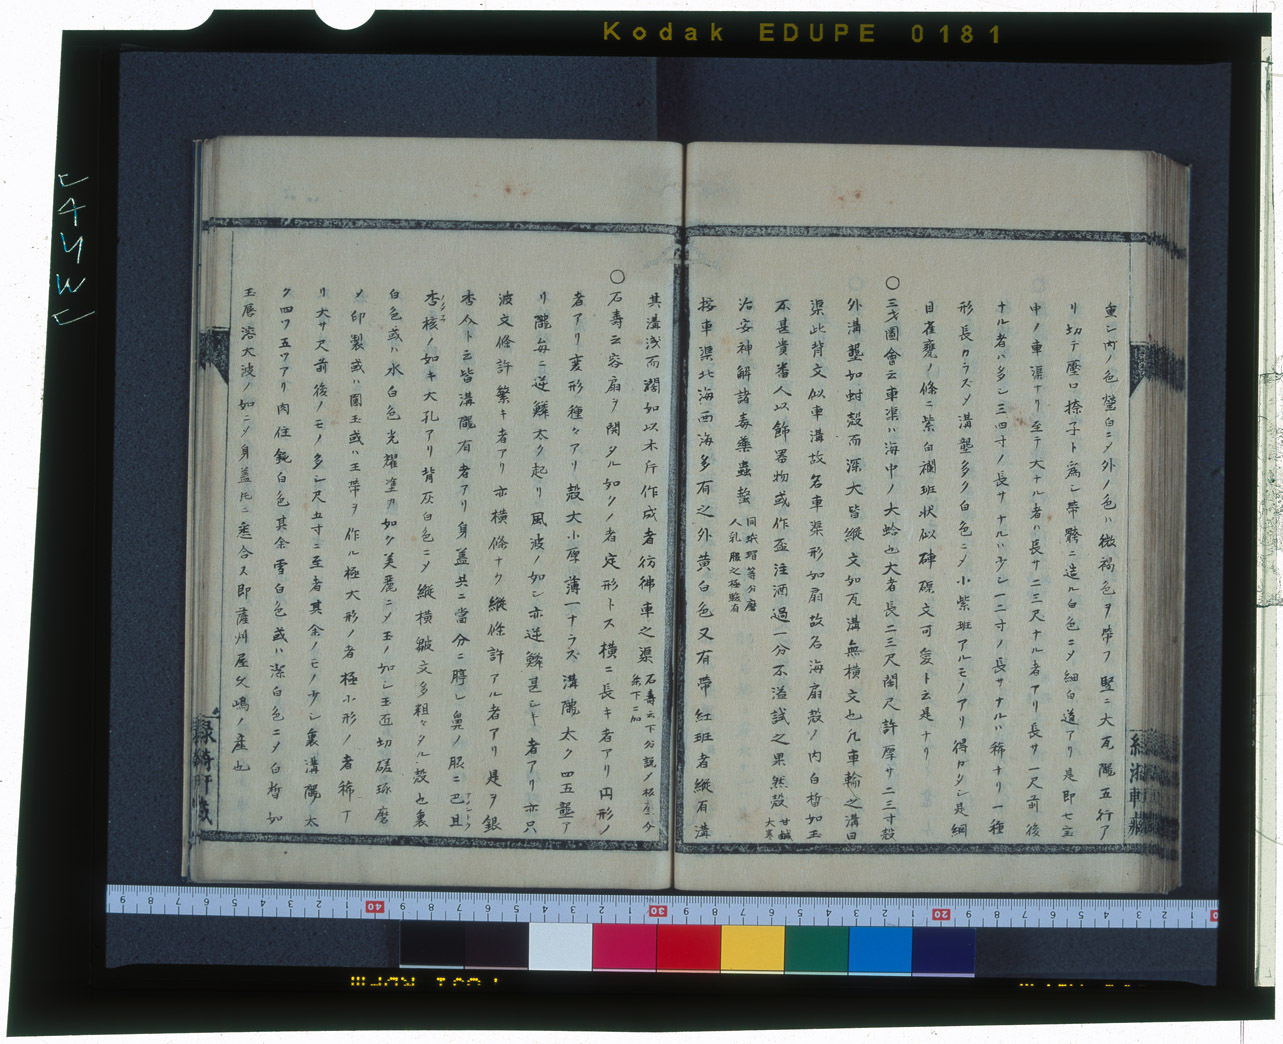 Kodak EDUPE 0181
重シ内ノ色瑩白ニメ外ノ色ハ微褐色ヲ帯フ竪ニ大瓦隴五行ア
リ切テ壓口捺子ト為シ帯䯊ニ造ル白色ニメ細白道アリ是即七宝
中ノ車渠ナリ至テ大ナル者ハ長サ二三尺ナル者アリ長サ一尺前後
ナル者ハ多シ三四寸ノ長サナルハ少シ一二寸ノ長サナルハ稀ナリ一種
形長カラズメ溝壟多ク白色ニメ小紫斑アルモノアリ得カタシ是綱
目在甕ノ條ニ紫白襴斑状似硨磲文可愛ト云是ナリ
○三才圖會云車渠ハ海中ノ大蛤也大者長二三尺闊尺許厚サ二三寸殻
外溝壟如蚶殻而深大皆縦文如瓦溝無横文也凡車輪之溝曰
渠此背文似車溝故名車渠形如扇故名海扇殻ノ内白皙如玉
不甚貴番人以飾器物或作盃注酒過一分不溢試之果然殻甘鹹大寒
治安神解諸毒藥蟲螫同玳瑁等分磨人乳服之極驗有
按車渠北海西海多有之外黄白色又有帯紅斑者縦有溝
其溝浅而闊如以木斤作成者彷彿車之渠
○石壽云容扇ヲ開タル如クノ者定形トス横ニ長キ者アリ円形ノ
者アリ変形種々アリ殻大小厚薄一ナラズ溝隴太ク四五壟ア
リ隴毎ニ逆鱗太ク起リ風波ノ如シ亦逆鱗甚シト者アリ亦只
波文條許繁キ者アリ亦横條ナク縦條許アル者アリ是ヲ銀
杏介ト云皆溝隴有者アリ身蓋共ニ當分ニ臍シ鼻ノ服ニ巴且
杏核ノ如キ大孔アリ背灰白色ニメ縦横皺文多粗々タル殻也裏
白色或ハ水白色光耀塗カ如ク美麗ニメ玉ノ如シ玉匠切磋琢磨
メ印製或ハ圓玉或ハ玉帯ヲ作ル極大形ノ者極小形ノ者稀ナ
リ大サ尺前後ノモノ多シ尺五寸ニ至者其余ノモノ少シ裏溝隴太
ク四ツ五ツアリ肉住鈍白色其余雪白色或ハ潔白色ニメ白皙如
玉唇溶大波ノ如ニメ身蓋尤ニ悉合ス即薩州屋久嶋ノ産也